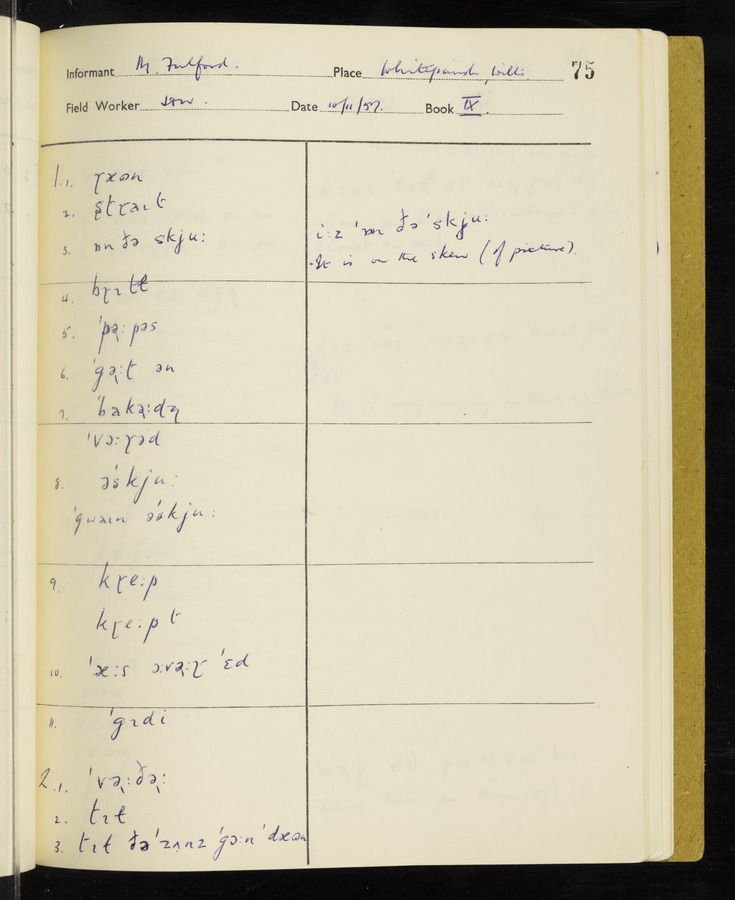 Informant M. Fulford. Place Whiteparish, Wilts. 75
Field Worker Date 10/11/57. Book IX.
1.1. ɽæən
2. ʂtɽaɪt
3. ɒn ðə skju: i:z 'ɒn ðə 'skju:
It is on the skew (of picture).
4. bɽɪtɫ
5. 'pəʴ:pəs
6. 'gəʴ:t ən
7. 'bakəʴ:dz̩
'vɔ:ɽəd
8. ə'skju:
'gwaɪn ə'skju:
9. kɽe:p
kɽe:pt
10. 'æ:s ɔ:vəʴ:ɽ 'ɛd
11. 'gɪdi
2.1. 'vəʴ:ðəʴ:
2. tɪɫ
3. tɪɫ ðə 'zʌnz 'gɔ:n 'dæən